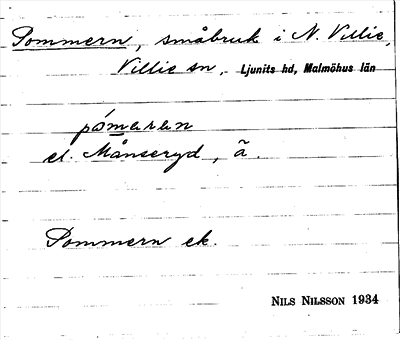 Pommern, småbruk i N. Villie,
Villie sn, Ljunits hd, Malmöhus län
el. Månseryd, ã.
Pommern ek.
NILS NILSSON 1934